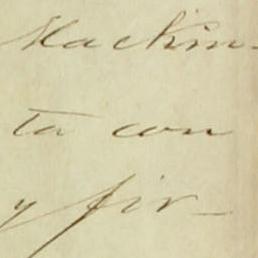 Mackin-
ta con
y fir-